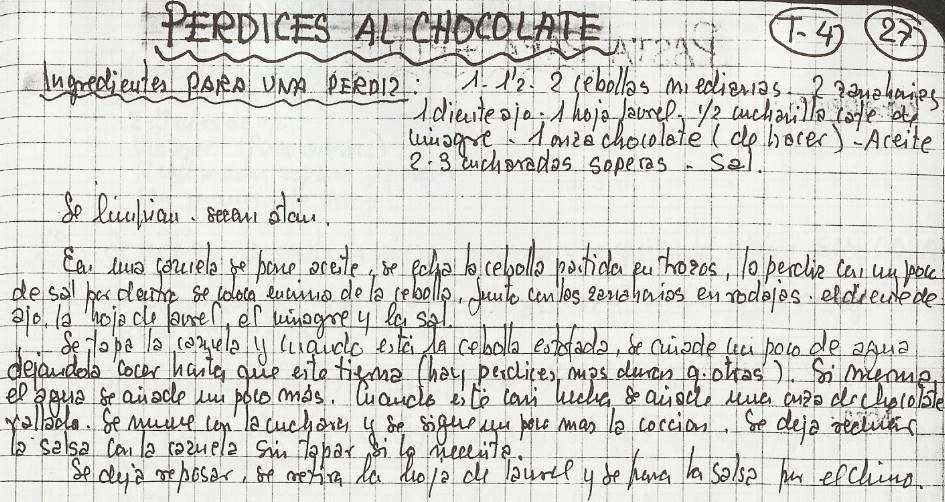 PERDICES AL CHOCOLATE T-4 27
Ingredientes PARA UNA PERDIZ: 1-1½-2 cebollas medianas. 2 zanahorias
1 diente ajo. 1 hoja laurel. 1/2 cucharilla cafe de
vinagre - 1 onza chocolate (de hacer) - Aceite
2-3 cucharadas soperas - Sal.
Se limpian. secan atan.
En una cazuela se pone aceite, se echa la cebolla partida en trozos, la perdiz con un poco
de sal por dentro se coloca encima de la cebolla, junto con las zanahorias en rodajas. el diente de
ajo, la hoja de laurel, el vinagre y la sal.
Se tapa la cazuela y cuando está la cebolla estofada, se añade un poco de agua
dejandola cocer hasta que este tierna (hay perdices, mas duras q. otras). Si merma
el agua se añade un poco más. Cuando esté casi hecha se añade una onza de chocolate
rallado. Se mueve con la cuchara y se sigue un poco mas la coccion. Se deja reducir
la salsa con la cazuela sin tapar si lo necesita.
Se deja reposar, se retira la hoja de laurel y se pasa la salsa por el chino.